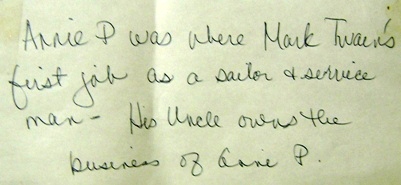 Annie P was where Mark Twain's
first job as a sailor & service
man - His Uncle owns the
business of Annie P.